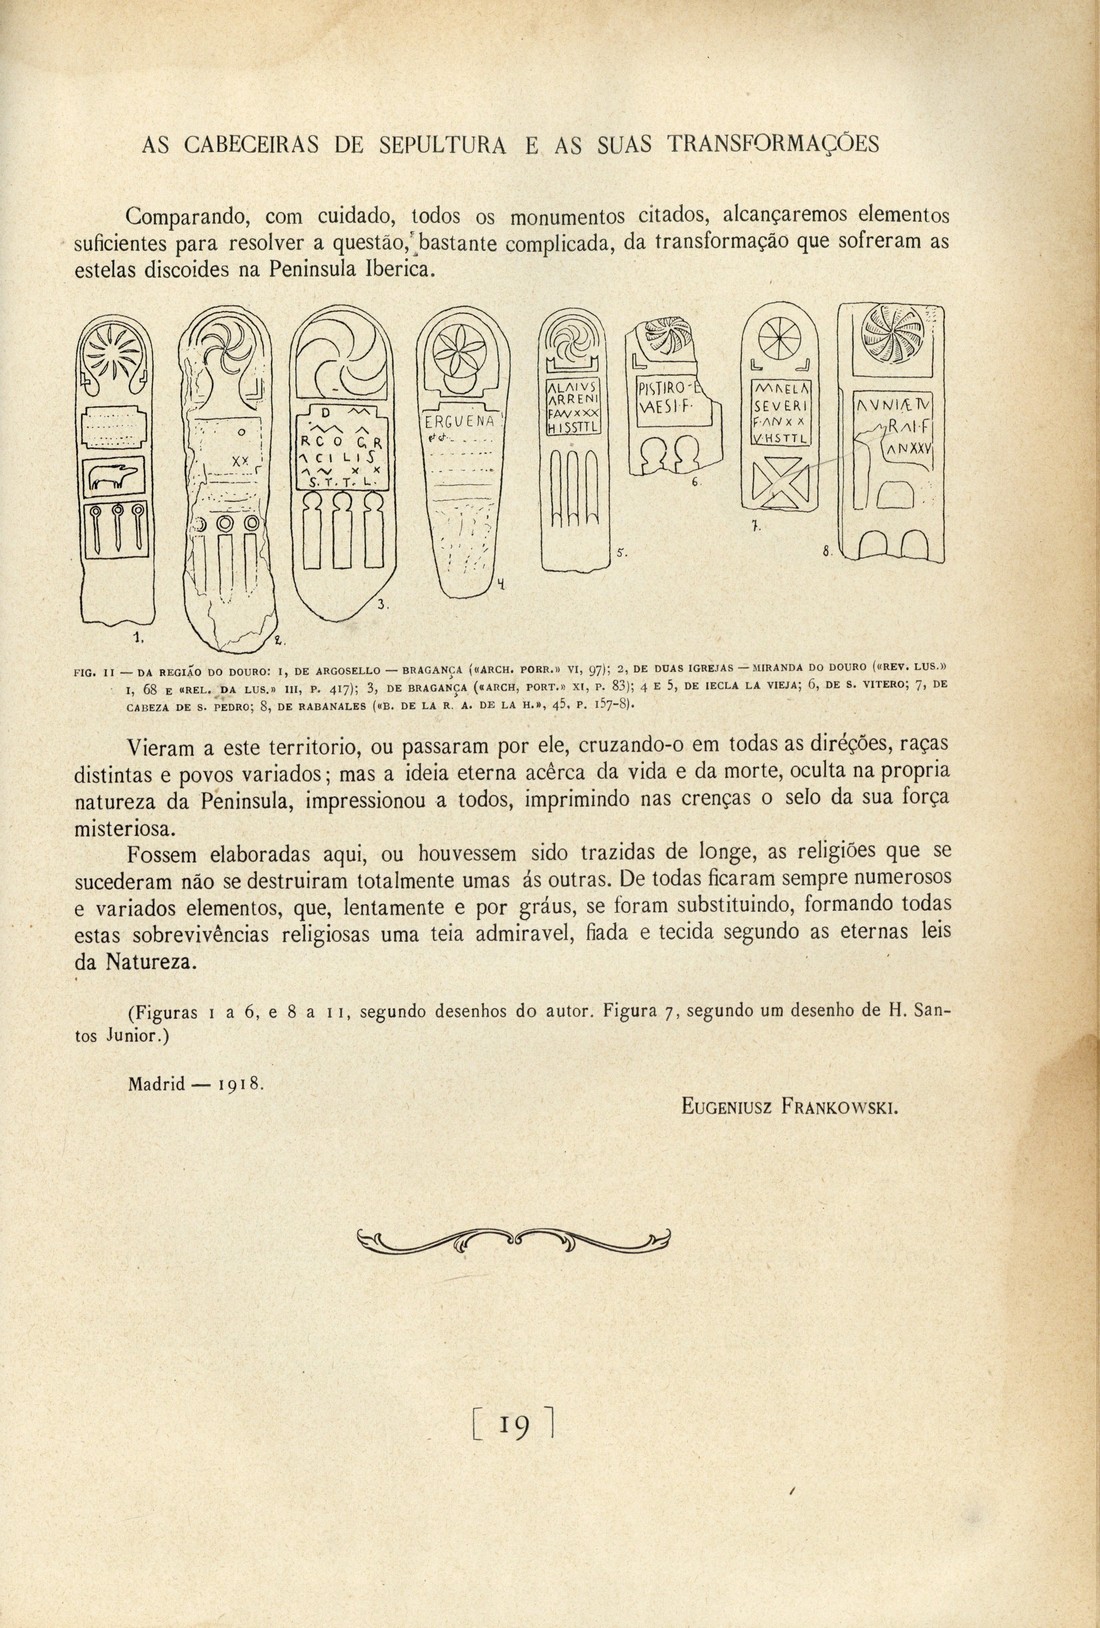 AS CABECEIRAS DE SEPULTURA E AS SUAS TRANSFORMAÇÕES
Comparando, com cuidado, todos os monumentos citados, alcançaremos elementos
suficientes para resolver a questão, bastante complicada, da transformação que sofreram as
estelas discoides na Peninsula Iberica.
1.
XX
2.
D
RCO GR
ACILIS
X X
S.T.T.L.
3.
ERGUENA
4
ALAIVS
ARRENI
F AN XXX
HISSTTL
5.
PISTIRO-E
VAESI·F·
6.
MAELA
SEVERI
F·AN X X
VHSTTL
7.
AVNIÆTV
RAI·F
ANXXV
8.
FIG. 11 — DA REGIÃO DO DOURO: 1, DE ARGOSELLO — BRAGANÇA («ARCH. PORR.» VI, 97); 2, DE DUAS IGREJAS — MIRANDA DO DOURO («REV. LUS.»
I, 68 E «REL. DA LUS.» III, P. 417); 3, DE BRAGANÇA («ARCH, PORT.» XI, P. 83); 4 E 5, DE IECLA LA VIEJA; 6, DE S. VITERO; 7, DE
CABEZA DE S. PEDRO; 8, DE RABANALES («B. DE LA R. A. DE LA H.», 45, P. 157-8).
Vieram a este territorio, ou passaram por ele, cruzando-o em todas as diréções, raças
distintas e povos variados; mas a ideia eterna acêrca da vida e da morte, oculta na propria
natureza da Peninsula, impressionou a todos, imprimindo nas crenças o selo da sua força
misteriosa.
Fossem elaboradas aqui, ou houvessem sido trazidas de longe, as religiões que se
sucederam não se destruiram totalmente umas ás outras. De todas ficaram sempre numerosos
e variados elementos, que, lentamente e por gráus, se foram substituindo, formando todas
estas sobrevivências religiosas uma teia admiravel, fiada e tecida segundo as eternas leis
da Natureza.
(Figuras 1 a 6, e 8 a 11, segundo desenhos do autor. Figura 7, segundo um desenho de H. San-
tos Junior.)
Madrid — 1918.
EUGENIUSZ FRANKOWSKI.
[ 19 ]